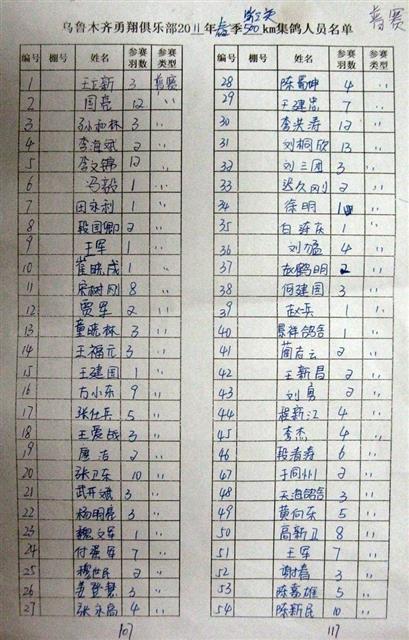 普赛
乌鲁木齐勇翔俱乐部2011年春季500km集鸽人员名单
编号 棚号 姓名 参赛羽数 参赛类型
1 王立新 3 普赛
2 闫亮 12 〃
3 孙和林 3 〃
4 李海斌 2 〃
5 李文锦 12 〃
6 冯毅 1 〃
7 田永利 1 〃
8 段国卿 2 〃
9 王军 1 〃
10 崔晓成 1 〃
11 宋树刚 8 〃
12 贾军 2 〃
13 董晓林 3 〃
14 王福元 3 〃
15 王建国 1 〃
16 方小东 9 〃
17 张仕兵 5 〃
18 王爱战 3 〃
19 唐洁 2 〃
20 张卫东 10 〃
21 武开斌 3 〃
22 杨明亮 3 〃
23 魏文军 1 〃
24 付荣军 7 〃
25 穆世民 2 〃
26 苏登慧 3 〃
27 张永昌 4 〃
107
编号 棚号 姓名 参赛羽数 参赛类型
28 陈蜀坤 4 〃
29 王建忠 7 〃
30 李洪涛 12 〃
31 刘桐欣 13 〃
32 刘三团 3 〃
33 迟久刚 2 〃
34 徐明 1 〃
35 白 1 〃
36 刘猛 4 〃
37 赵鹏明 2 〃
38 何建国 3 〃
39 赵兵 1 〃
40 景祥鸽舍 1 〃
41 蔺右云 2 〃
42 王新昌 2 〃
43 刘勇 2 〃
44 程新江 4 〃
45 李杰 4 〃
46 段浩寿 6 〃
47 于同川 2 〃
48 天海鸽舍 3 〃
49 黄向东 5 〃
50 高新卫 8 〃
51 王军 7 〃
52 谢春 3 〃
53 陈嘉雄 5 〃
54 陈新民 10 〃
117